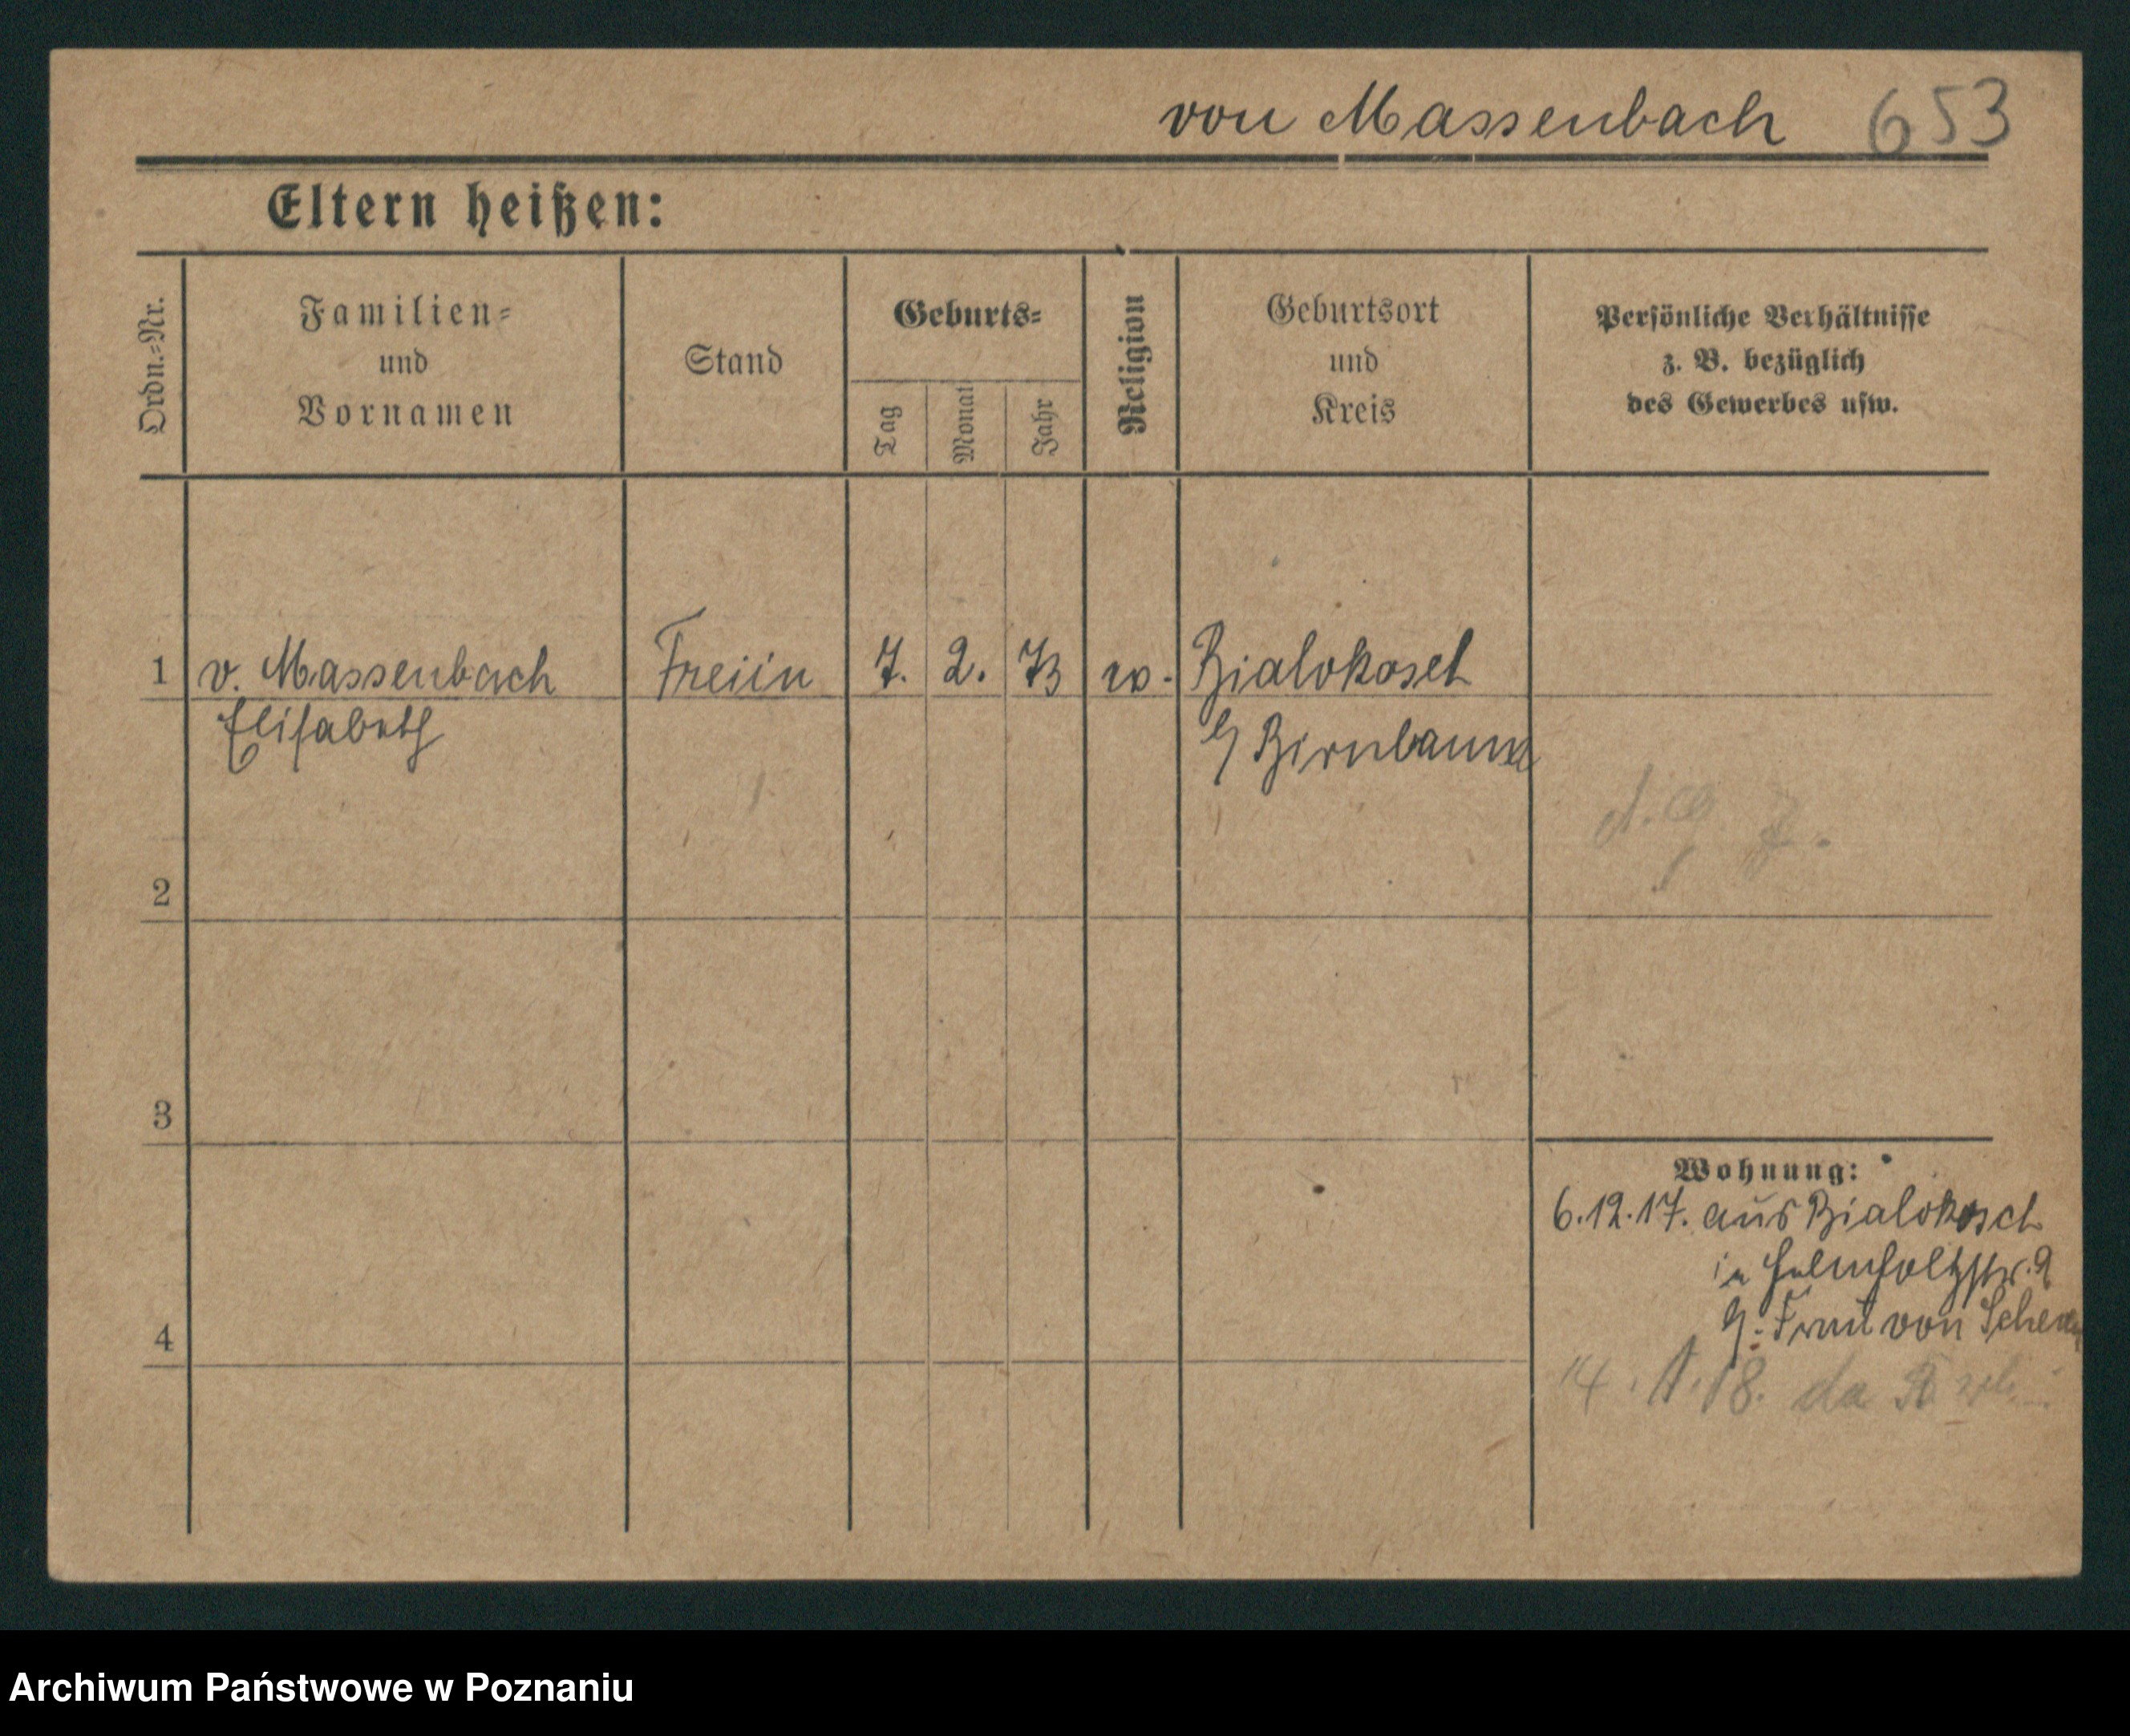 von Massenbach 653
Eltern heißen:
Ordn.-Nr.
Familien-
und
Vornamen
Stand
Geburts-
Tag
Monat
Jahr
Religion
Geburtsort
und
Kreis
Persönliche Verhältnisse
z. B. bezüglich
des Gewerbes usw.
1 v. Massenbach Freiin 7. 2. 73 ev. Bialokosch
Elisabeth Birnbaum
2
3
Wohnung:
6.12.17. aus Bialokosch
in Helmholtzstr. 9
Frau von
4
14. 1. 18.
Archiwum Państwowe w Poznaniu